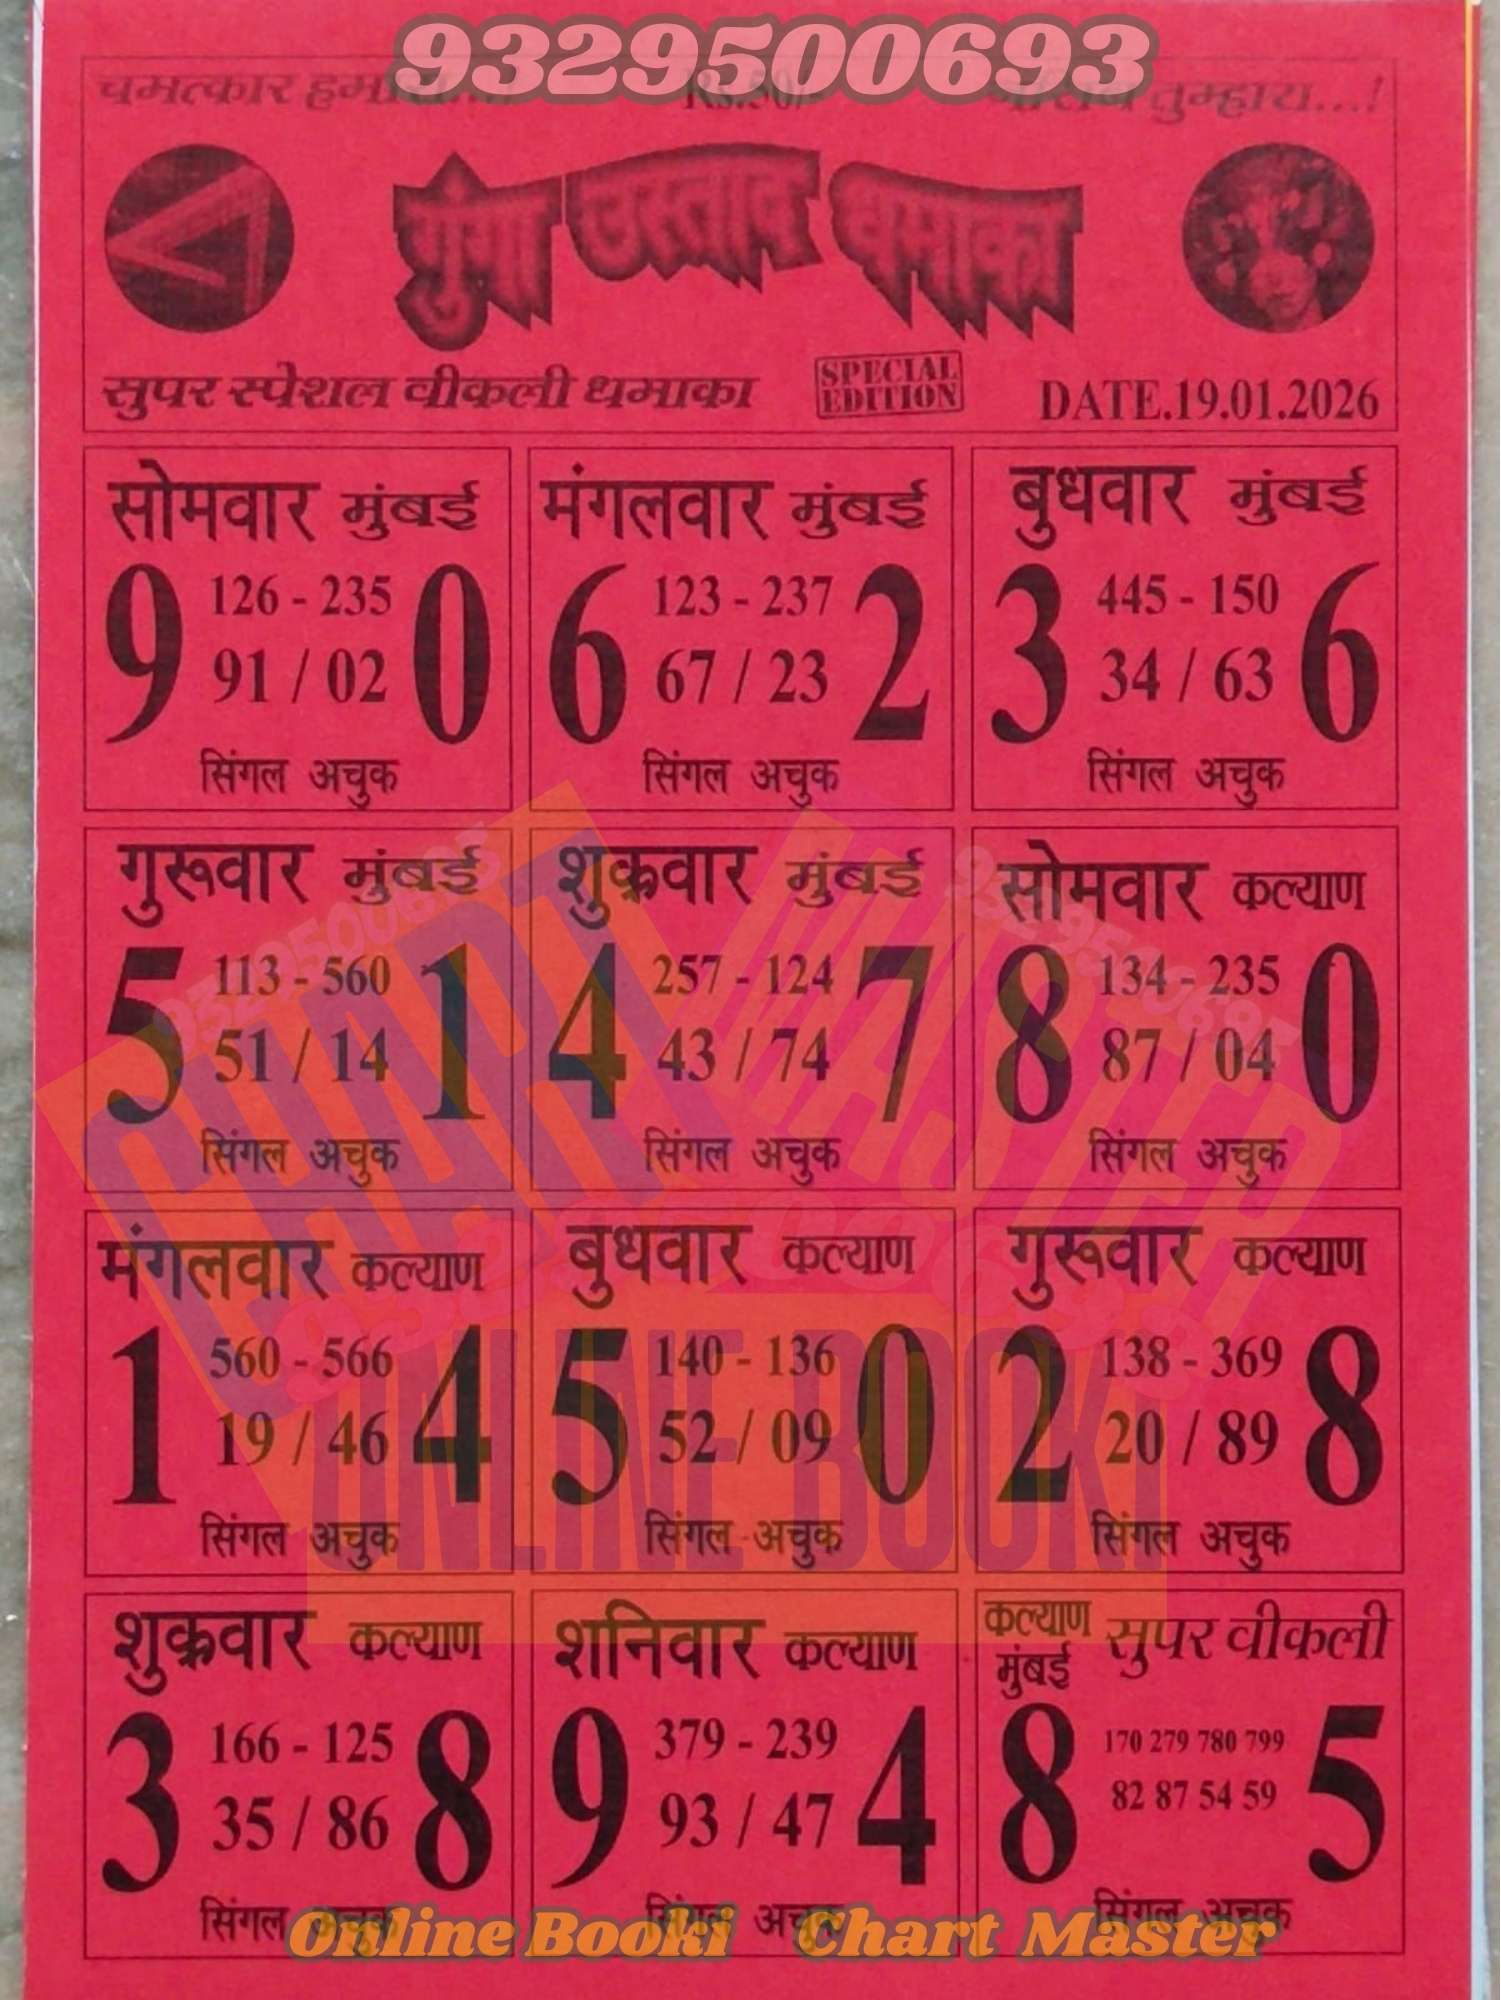 9329500693
चमत्कार हमारा....! Rs.50/- तुम्हारा....!
गुंगा उस्ताद धमाका
सुपर स्पेशल वीकली धमाका SPECIAL EDITION DATE.19.01.2026
सोमवार मुंबई
9 126 - 235 0
91 / 02
सिंगल अचुक
मंगलवार मुंबई
6 123 - 237 2
67 / 23
सिंगल अचुक
बुधवार मुंबई
3 445 - 150 6
34 / 63
सिंगल अचुक
गुरूवार मुंबई
5 113 - 560 1
51 / 14
सिंगल अचुक
शुक्रवार मुंबई
4 257 - 124 7
43 / 74
सिंगल अचुक
सोमवार कल्याण
8 134 - 235 0
87 / 04
सिंगल अचुक
मंगलवार कल्याण
1 560 - 566 4
19 / 46
सिंगल अचुक
बुधवार कल्याण
5 140 - 136 0
52 / 09
सिंगल अचुक
गुरूवार कल्याण
2 138 - 369 8
20 / 89
सिंगल अचुक
शुक्रवार कल्याण
3 166 - 125 8
35 / 86
सिंगल अचुक
शनिवार कल्याण
9 379 - 239 4
93 / 47
सिंगल अचुक
कल्याण मुंबई सुपर वीकली
8 170 279 780 799 5
82 87 54 59
सिंगल अचुक
CHART MASTER
9329500693
ONLINE BOOKI
Online Booki Chart Master